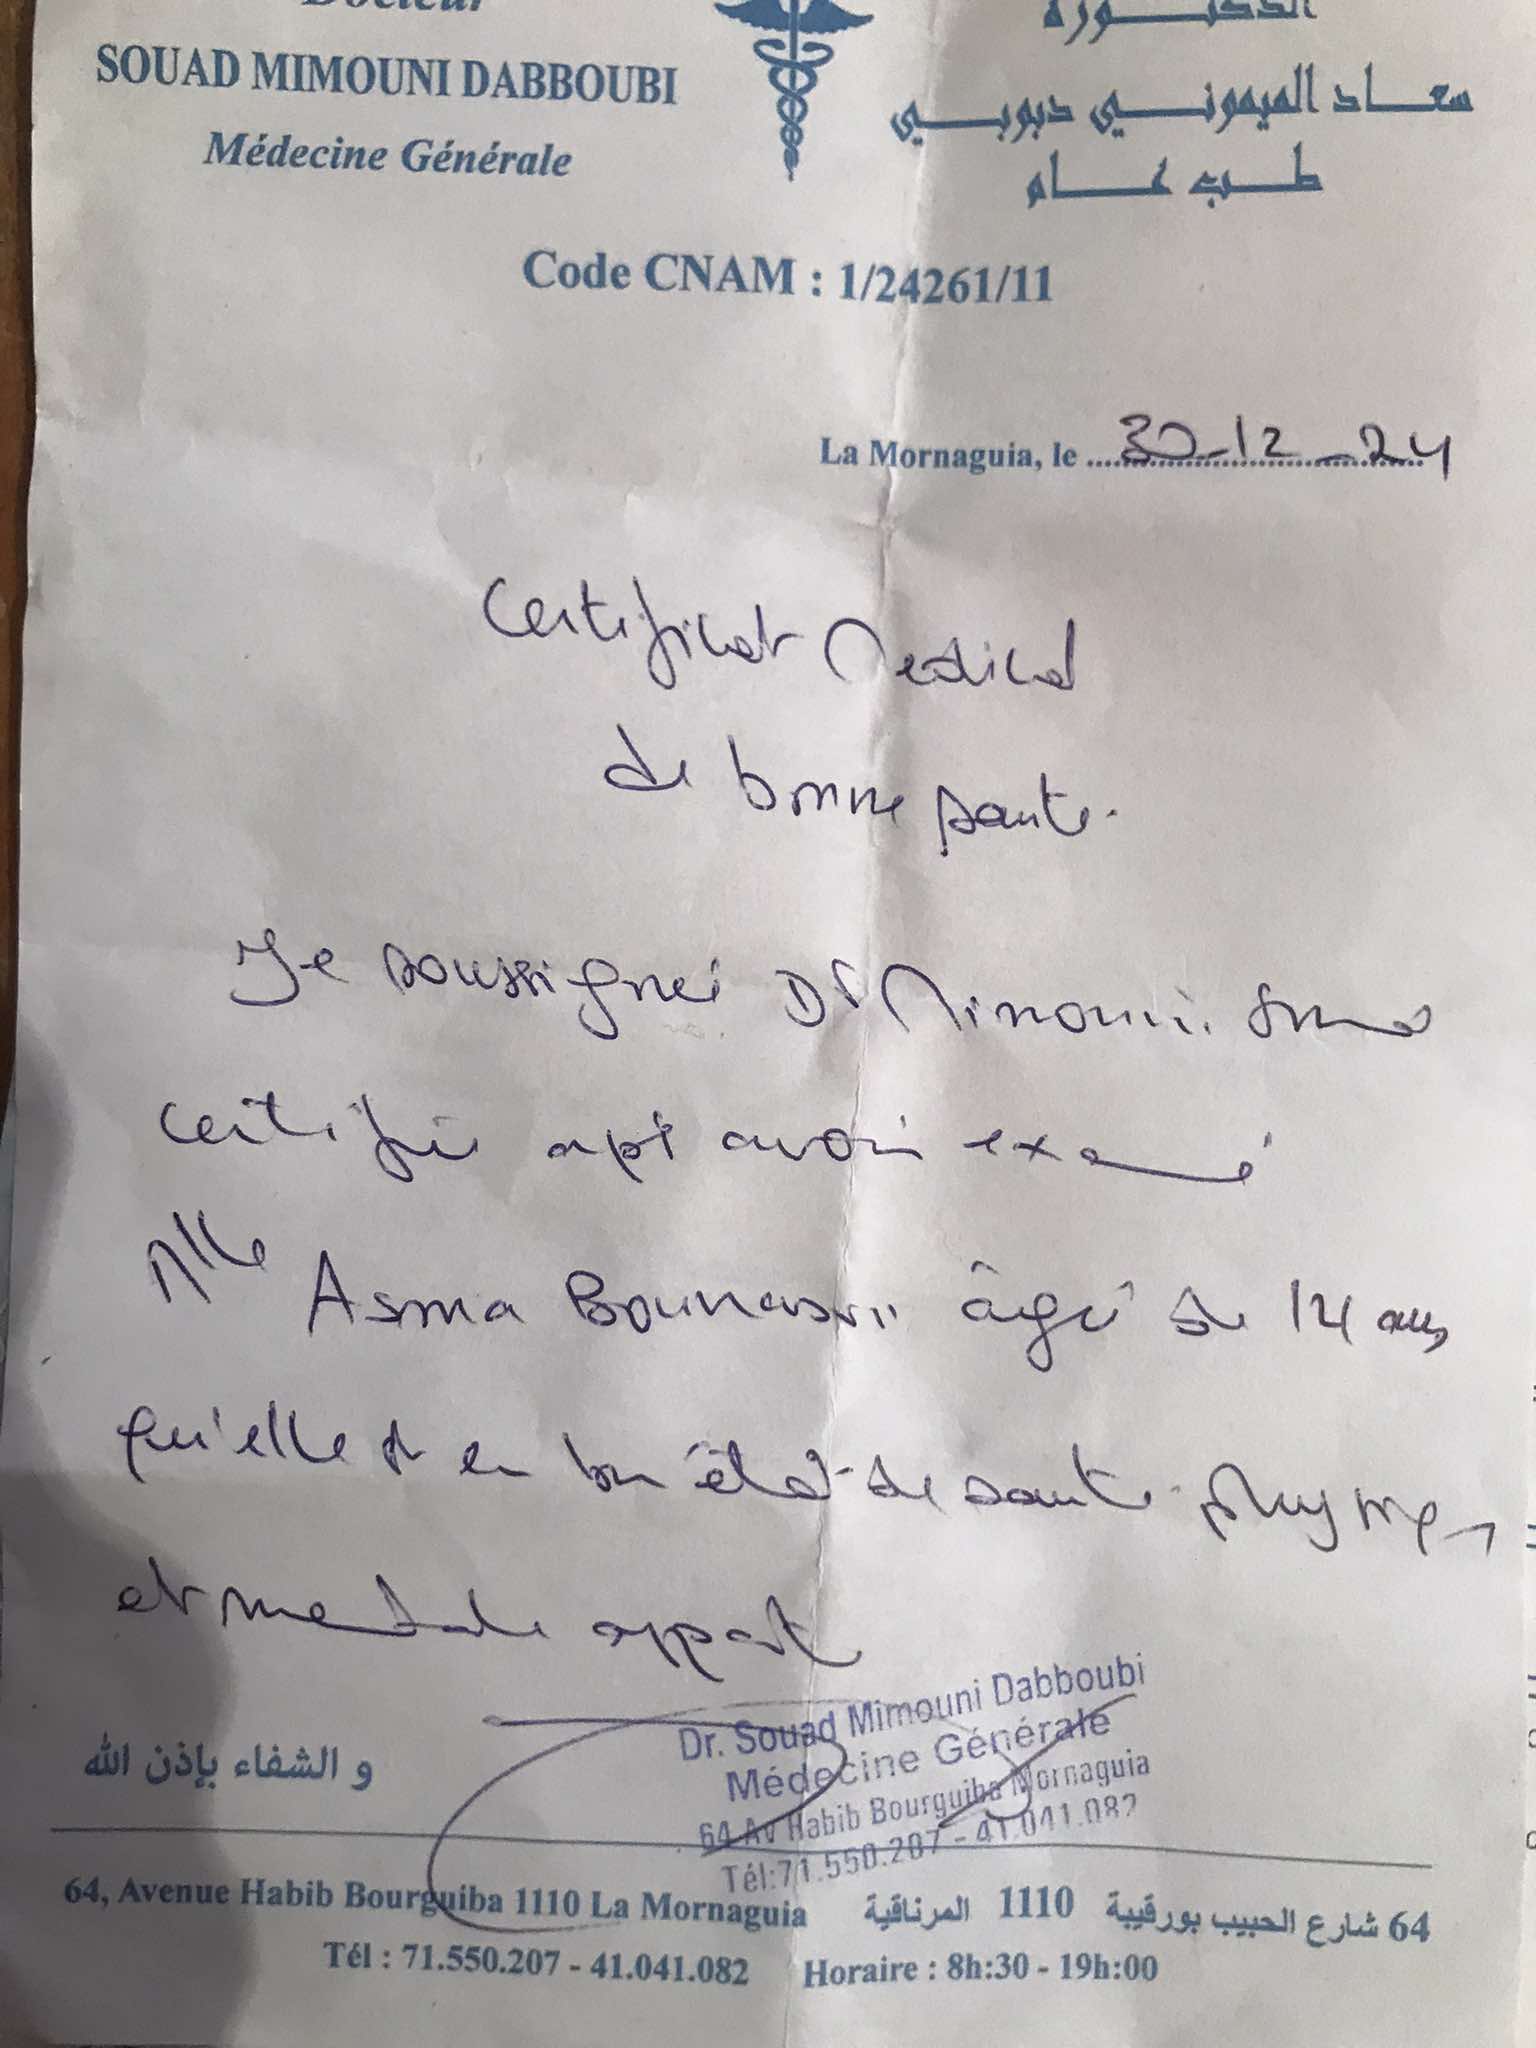 Docteur
SOUAD MIMOUNI DABBOUBI
Médecine Générale
الدكتورة
سعاد الميموني دبوبي
طب عام
Code CNAM : 1/24261/11
La Mornaguia, le 30-12-24
Certificat Medical
de bonne santé.
Je soussigné Dr Mimouni
certifie apr avoir
Mlle Asma Bounasri âgé de 14 ans
qu'elle en bon état de santé
et mentale appart
و الشفاء بإذن الله
Dr. Souad Mimouni Dabboubi
Médecine Générale
64 Av Habib Bourguiba Mornaguia
Tél:71.550.207 - 41.041.082
64, Avenue Habib Bourguiba 1110 La Mornaguia
64 شارع الحبيب بورقيبة 1110 المرناقية
Tél : 71.550.207 - 41.041.082 Horaire : 8h:30 - 19h:00